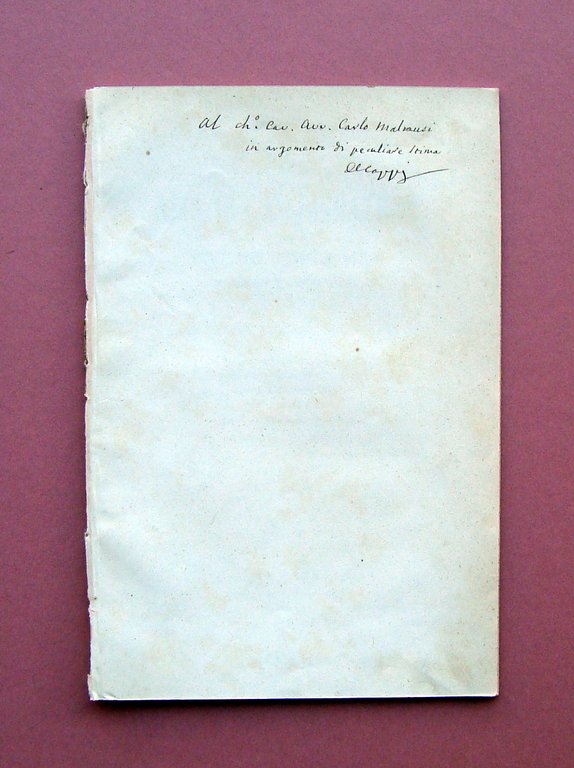 Al ch.º Cav. Avv. Carlo Malmusi
in argomento di peculiare stima